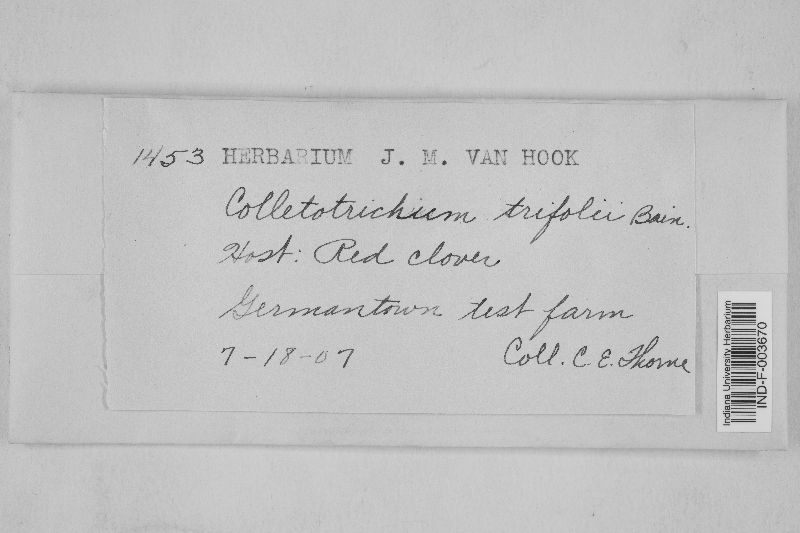 1453 HERBARIUM J. M. VAN HOOK
Colletotrichium trifolii Bain.
Host: Red clover
Germantown test farm
7-18-07 Coll. C. E. Thorne
Indiana University Herbarium
IND-F-003670